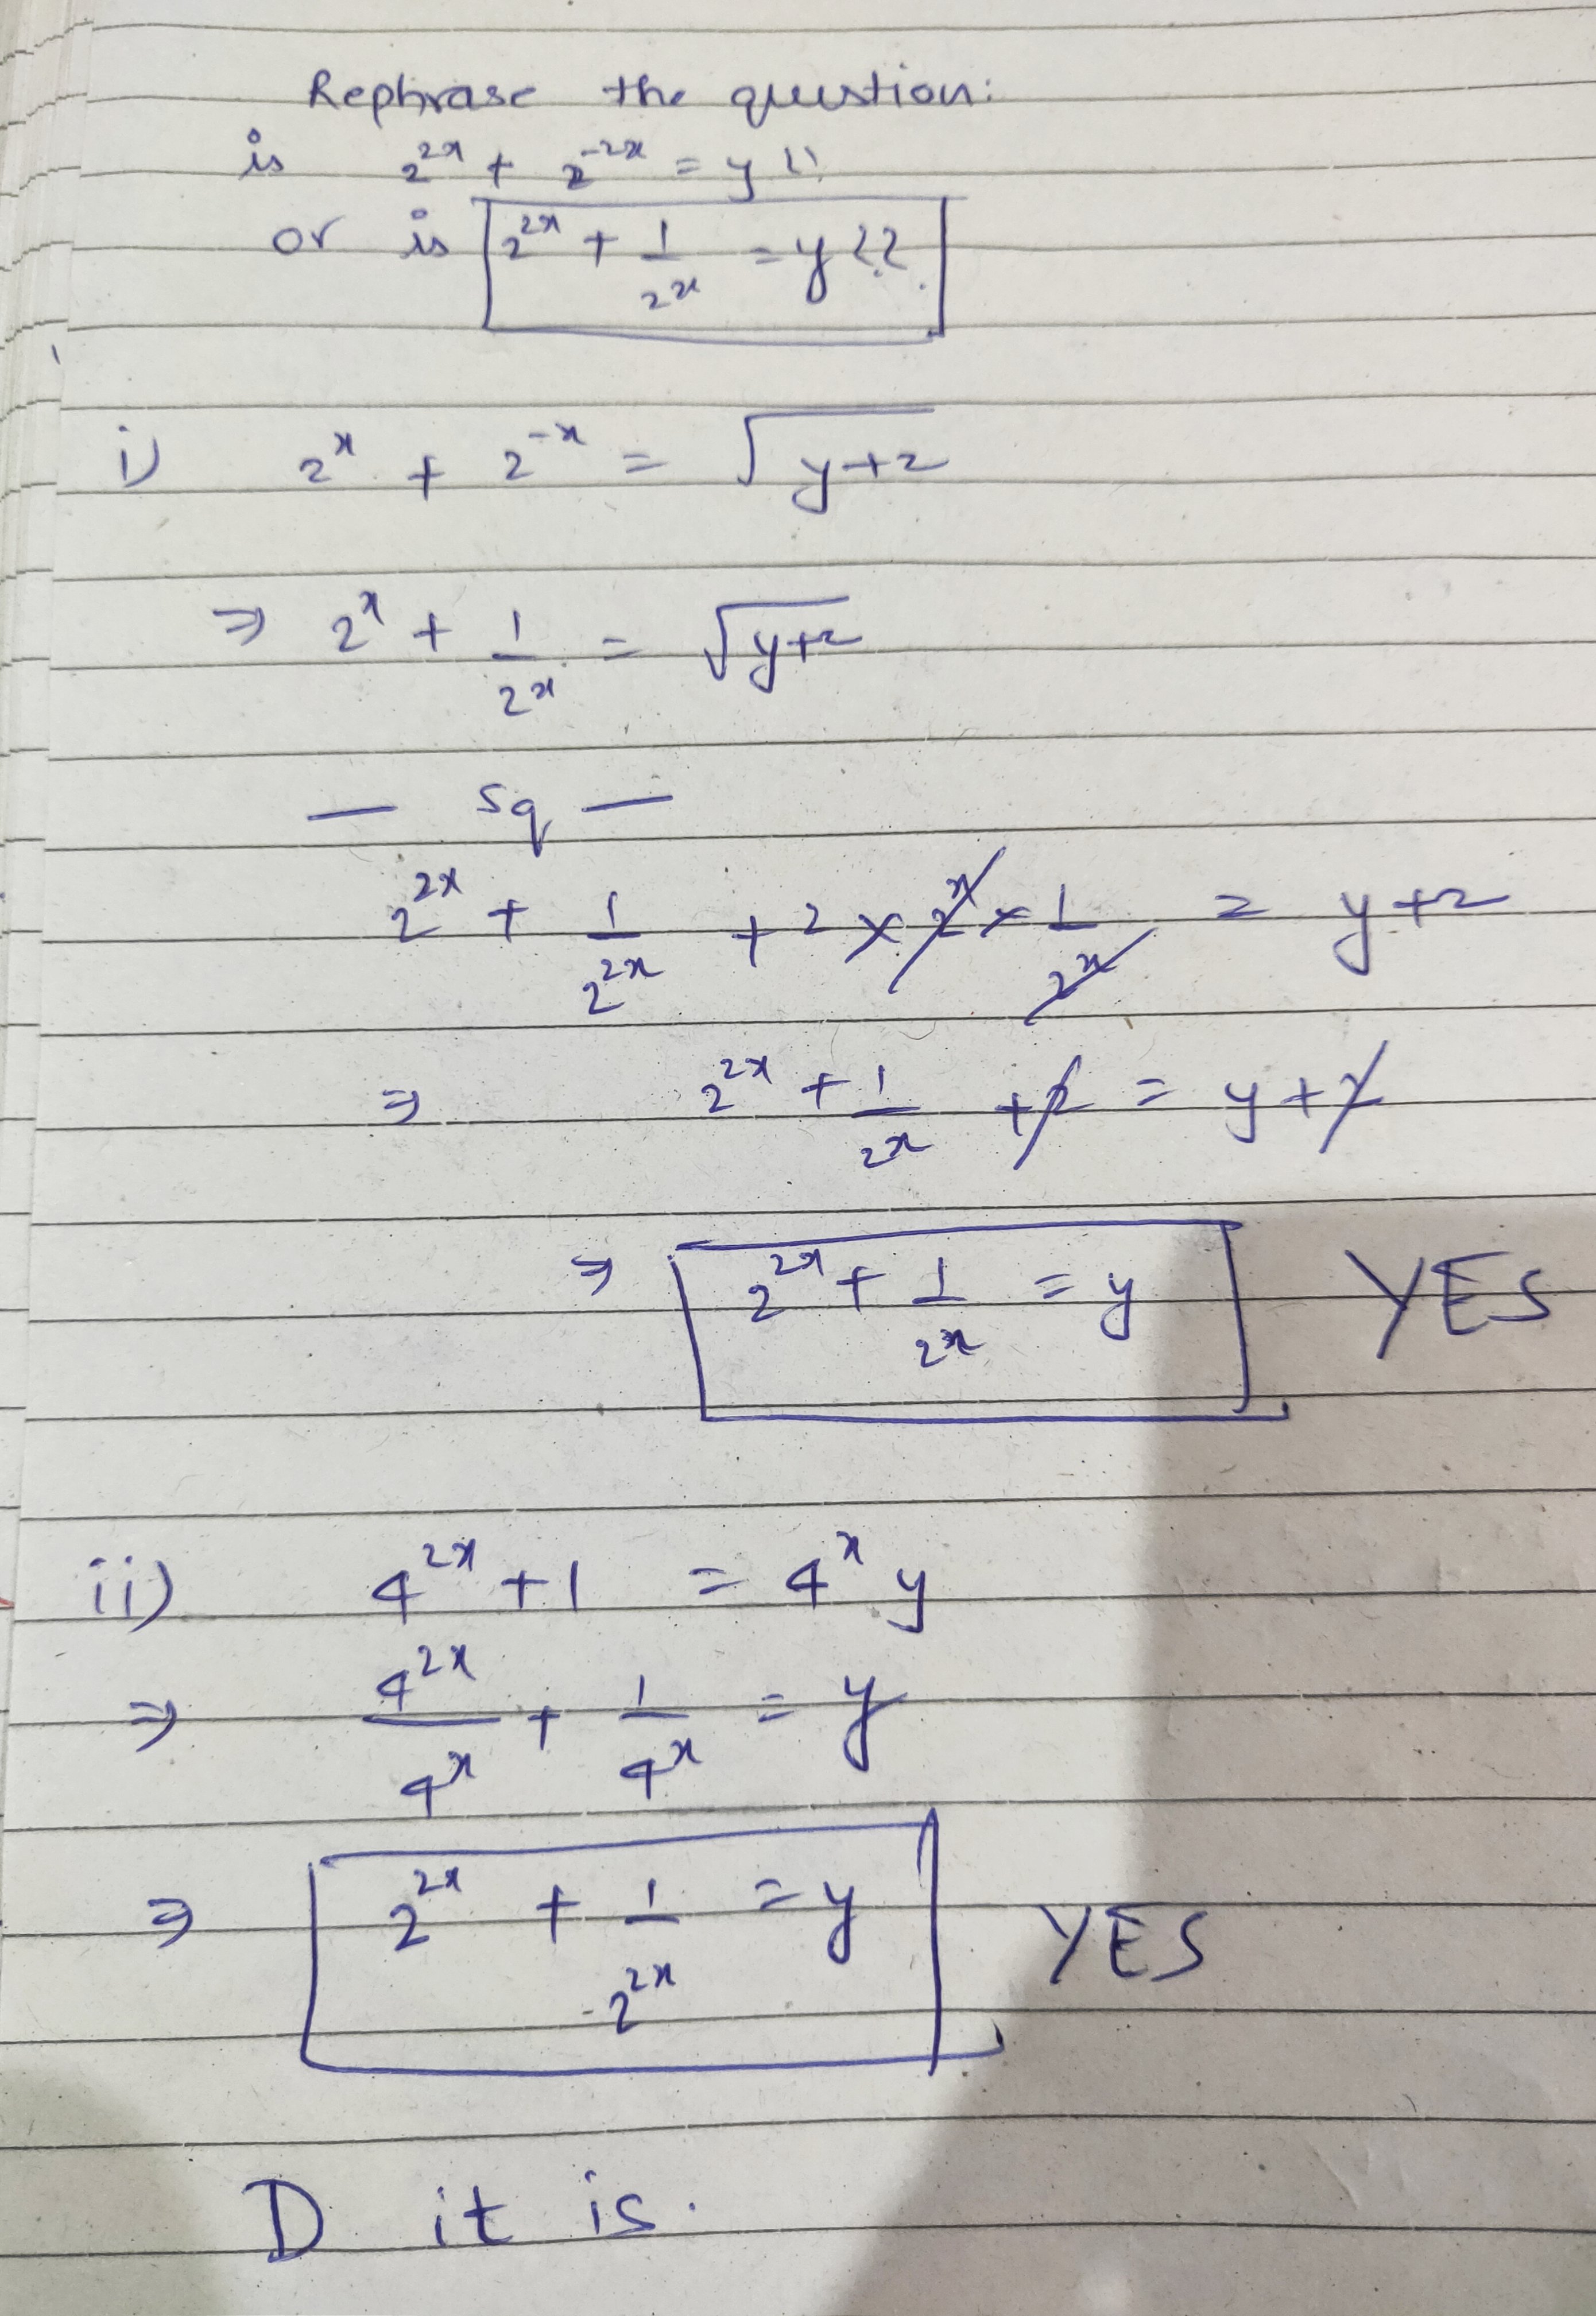 Rephrase the question:
is 2^{2x} + 2^{-2x} = y ??
or is 2^{2x} + 1/2^x = y ??
i) 2^x + 2^{-x} = √(y+2)
⇒ 2^x + 1/2^x = √(y+2)
— sq —
2^{2x} + 1/2^{2x} + 2 × 2^x × 1/2^x = y+2
⇒ 2^{2x} + 1/2^x + 2 = y + 2
⇒ 2^{2x} + 1/2^x = y YES
ii) 4^{2x} + 1 = 4^x y
⇒ 4^{2x}/4^x + 1/4^x = y
⇒ 2^{2x} + 1/2^{2x} = y YES
D it is.